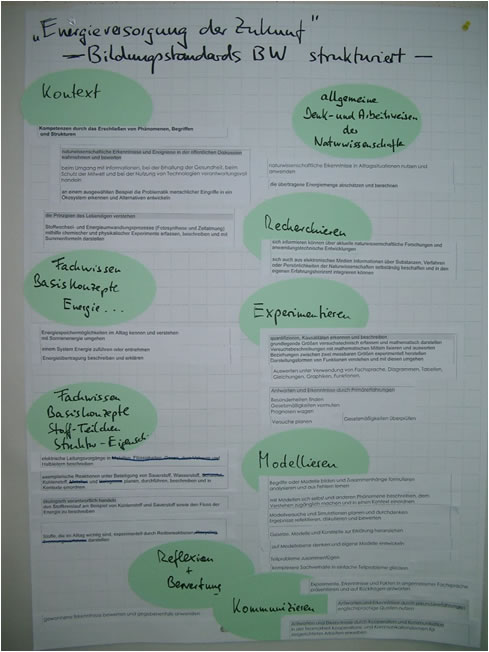 „Energieversorgung der Zukunft"
— Bildungsstandards BW strukturiert —
Kontext
Kompetenzen durch das Erschließen von Phänomenen, Begriffen
und Strukturen
naturwissenschaftliche Erkenntnisse und Ereignisse in der öffentlichen Diskussion
wahrnehmen und bewerten
beim Umgang mit Informationen, bei der Erhaltung der Gesundheit, beim
Schutz der Mitwelt und bei der Nutzung von Technologien verantwortungsvoll
handeln
an einem ausgewählten Beispiel die Problematik menschlicher Eingriffe in ein
Ökosystem erkennen und Alternativen entwickeln
die Prinzipien des Lebendigen verstehen
Stoffwechsel- und Energieumwandlungsprozesse (Fotosynthese und Zellatmung)
mithilfe chemischer und physikalischer Experimente erfassen, beschreiben und mit
Summenformeln darstellen
Fachwissen
Basiskonzepte
Energie...
Energiespeichermöglichkeiten im Alltag kennen und verstehen
mit Sonnenenergie umgehen
einem System Energie zuführen oder entnehmen
Energieübertragung beschreiben und erklären
Fachwissen
Basiskonzepte
Stoff-Teilchen
Struktur-Eigensch.
elektrische Leitungsvorgänge in
Halbleitern beschreiben
exemplarische Reaktionen unter Beteiligung von Sauerstoff, Wasserstoff,
Kohlenstoff, planen, durchführen, beschreiben und in
Kontexte einordnen
ökologisch verantwortlich handeln
den Stoffkreislauf am Beispiel von Kohlenstoff und Sauerstoff sowie den Fluss der
Energie zu beschreiben
Stoffe, die im Alltag wichtig sind, experimentell durch Redoxreaktionen
darstellen
Reflexion
+
Bewertung
gewonnene Erkenntnisse bewerten und gegebenenfalls anwenden
allgemeine
Denk- und Arbeitsweisen
des
Naturwissenschaftlers
naturwissenschaftliche Erkenntnisse in Alltagssituationen nutzen und
anwenden
die übertragene Energiemenge abschätzen und berechnen
Recherchieren
sich informieren können über aktuelle naturwissenschaftliche Forschungen und
anwendungstechnische Entwicklungen
sich auch aus elektronischen Medien Informationen über Substanzen, Verfahren
oder Persönlichkeiten der Naturwissenschaften selbständig beschaffen und in den
eigenen Erfahrungshorizont integrieren können
Experimentieren
quantifizieren, Kausalitäten erkennen und beschreiben
grundlegende Größen messtechnisch erfassen und mathematisch darstellen
Versuchsbeschreibungen mit mathematischen Mitteln fixieren und auswerten
Beziehungen zwischen zwei messbaren Größen experimentell herstellen
Darstellungsformen von Funktionen verstehen und mit diesen umgehen
Auswerten unter Verwendung von Fachsprache, Diagrammen, Tabellen,
Gleichungen, Graphiken, Funktionen,
Antworten und Erkenntnisse durch Primärerfahrungen
Besonderheiten finden
Gesetzmäßigkeiten vermuten
Prognosen wagen
Versuche planen
Gesetzmäßigkeiten überprüfen
Modellieren
Begriffe oder Modelle bilden und Zusammenhänge formulieren
analysieren und aus Fehlern lernen
mit Modellen sich selbst und anderen Phänomene beschreiben, dem
Verstehen zugänglich machen und in einen Kontext einordnen
Modellversuche und Simulationen planen und durchdenken,
Ergebnisse reflektieren, diskutieren und bewerten
Gesetze, Modelle und Konzepte zur Erklärung heranziehen
auf Modellebene denken und eigene Modelle entwickeln
Teilprobleme zusammenfügen
komplexere Sachverhalte in einfache Teilprobleme gliedern
Kommunizieren
Experimente, Erkenntnisse und Fakten in angemessener Fachsprache
präsentieren und auf Rückfragen antworten
Antworten und Erkenntnisse durch
Antworten und Erkenntnisse durch Kooperation und Kommunikation